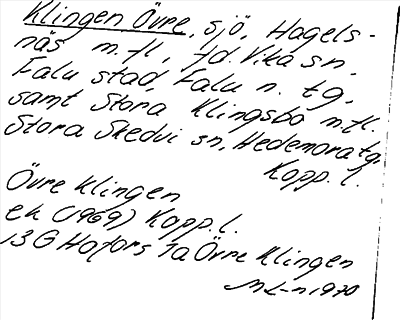 Klingen Övre, sjö, Hagels-
näs m.fl, fd. Vika sn,
Falu stad, Falu n. tg,
samt Stora Klingsbo m.fl.
Stora Skedvi sn, Hedemora tg,
Kopp. l.
Övre Klingen
ek (1969) Kopp. l.
13G Hofors 1a Övre Klingen
1970